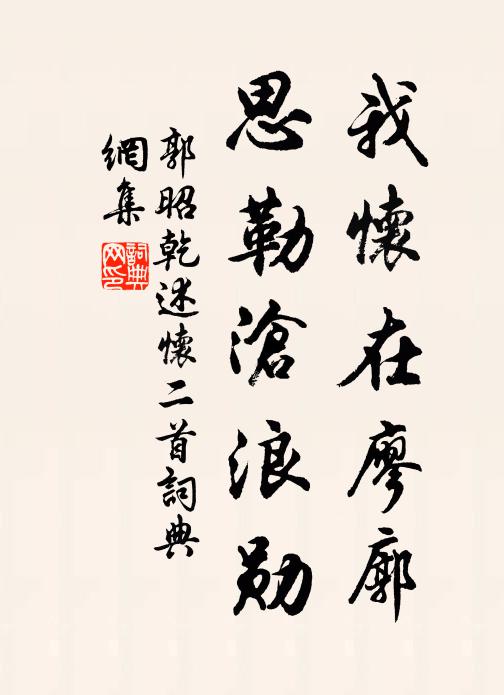 我懷在廖廓
思勒滄浪勋
郭昭乾述懷二首詞典
網集
詞典网印